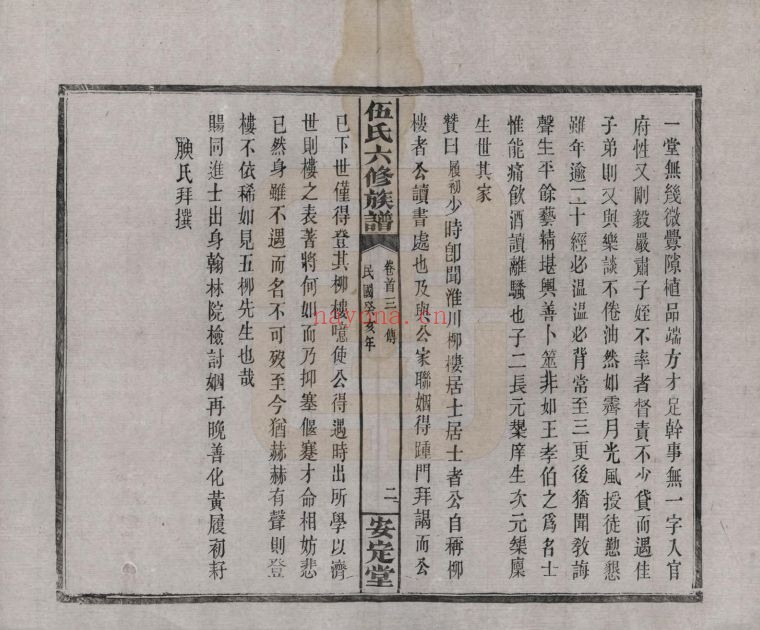 一堂無幾微釁隙植品端方才足幹事無一字入官
府性又剛毅嚴肅子姪不率者督責不少貸而遇佳
子弟則又與樂談不倦油然如霽月光風授徒懃懇
雖年逾二十經必温温必背常至三更後猶聞敎誨
聲生平餘藝精堪輿善卜筮非如王孝伯之爲名士
惟能痛飮酒讀離騷也子二長元榘庠生次元榘廩
生世其家
贊曰履初少時卽聞淮川柳樓居士居士者公自稱柳
樓者公讀書處也及與公家聯姻得踵門拜謁而公
伍氏六修族譜
卷首三 傳
民國癸亥年
二
安定堂
已下世僅得登其柳樓噫使公得遇時出所學以濟
世則樓之表著將何如而乃抑塞偃蹇才命相妨悲
已然身雖不遇而名不可歿至今猶赫赫有聲則登
樓不依稀如見五柳先生也哉
賜同進士出身翰林院檢討姻再晚善化黃履初耔
腴氏拜撰
hayona.cn